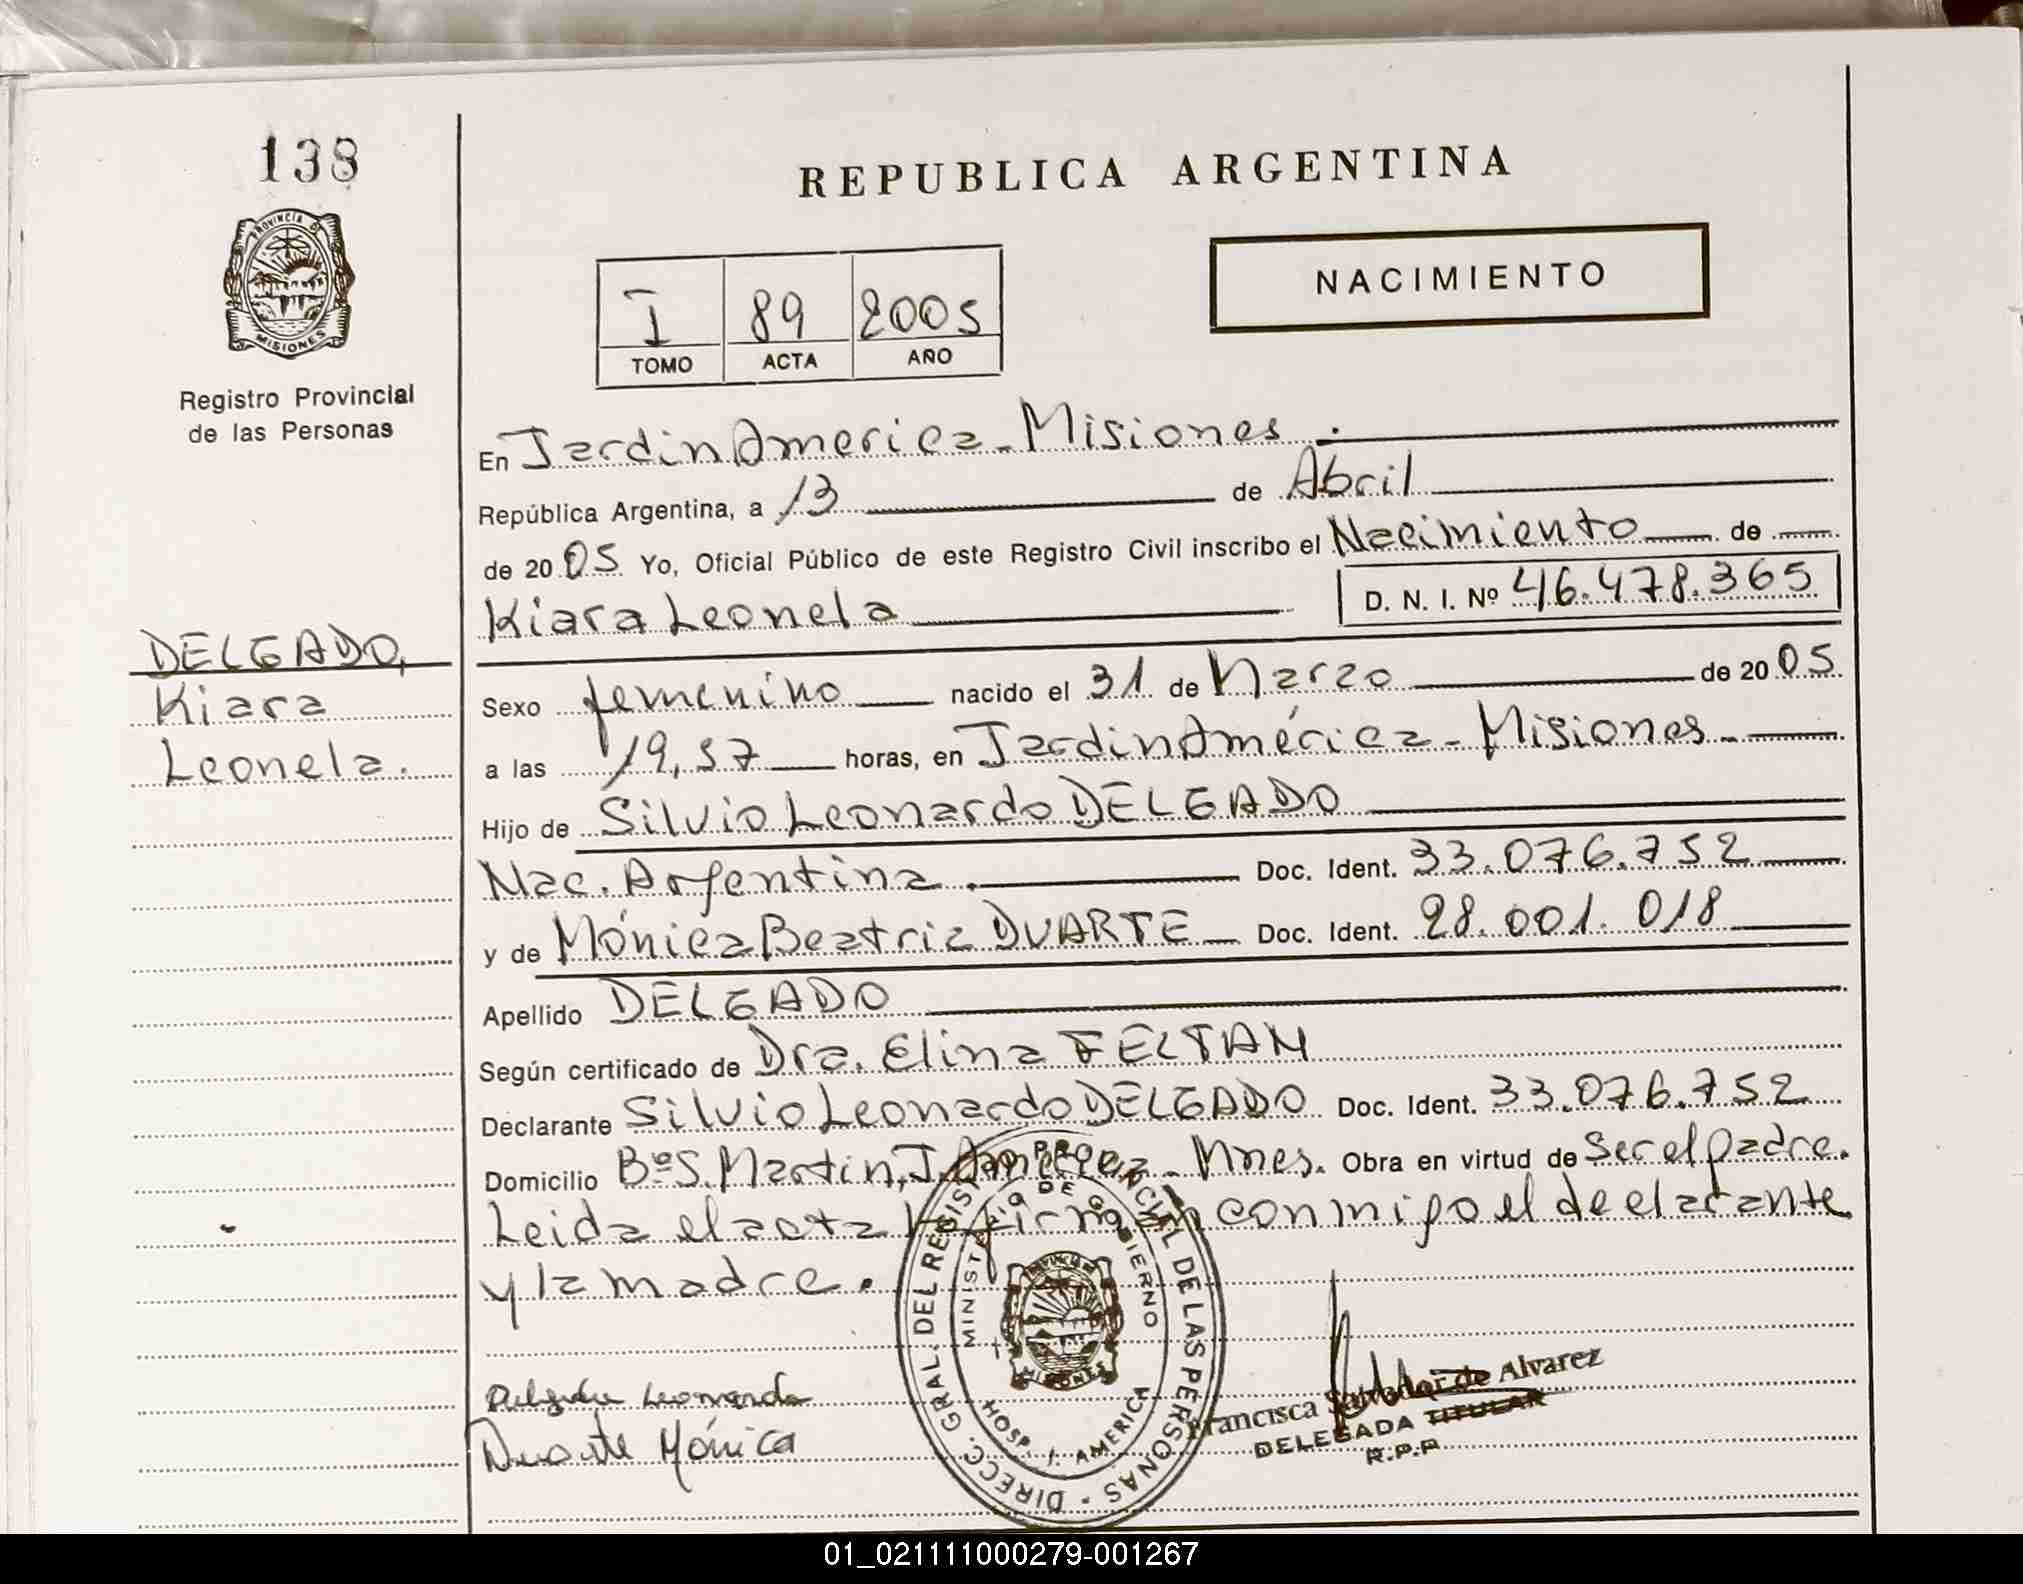 138
REPUBLICA ARGENTINA
PROVINCIA DE
MISIONES
NACIMIENTO
I 89 2005
TOMO ACTA AÑO
Registro Provincial
de las Personas
En Jardin America - Misiones.
República Argentina, a 13 de Abril
de 2005 Yo, Oficial Público de este Registro Civil inscribo el Nacimiento de
Kiara Leonela D. N. I. Nº 46.478.365
DELGADO,
Kiara
Leonela.
Sexo femenino nacido el 31 de Marzo de 2005
a las 19,57 horas, en Jardin América - Misiones
Hijo de Silvio Leonardo DELGADO
Nac. Argentina. Doc. Ident. 33.076.752
y de Mónica Beatriz DUARTE Doc. Ident. 28.001.018
Apellido DELGADO
Según certificado de Dra. Elina FELTAN
Declarante Silvio Leonardo DELGADO Doc. Ident. 33.076.752
Domicilio Bº S. Martin, J. America - Mnes. Obra en virtud de ser el padre.
Leida el acta la firman conmigo el declarante
y la madre.
DIRECC. GRAL. DEL REGISTRO PROVINCIAL DE LAS PERSONAS
MINISTERIO DE GOBIERNO
MISIONES
HOSP. J. AMERICA
Delgado Leonardo
Duarte Mónica
Francisca Salvador de Alvarez
DELEGADA TITULAR
R.P.P
01_021111000279-001267